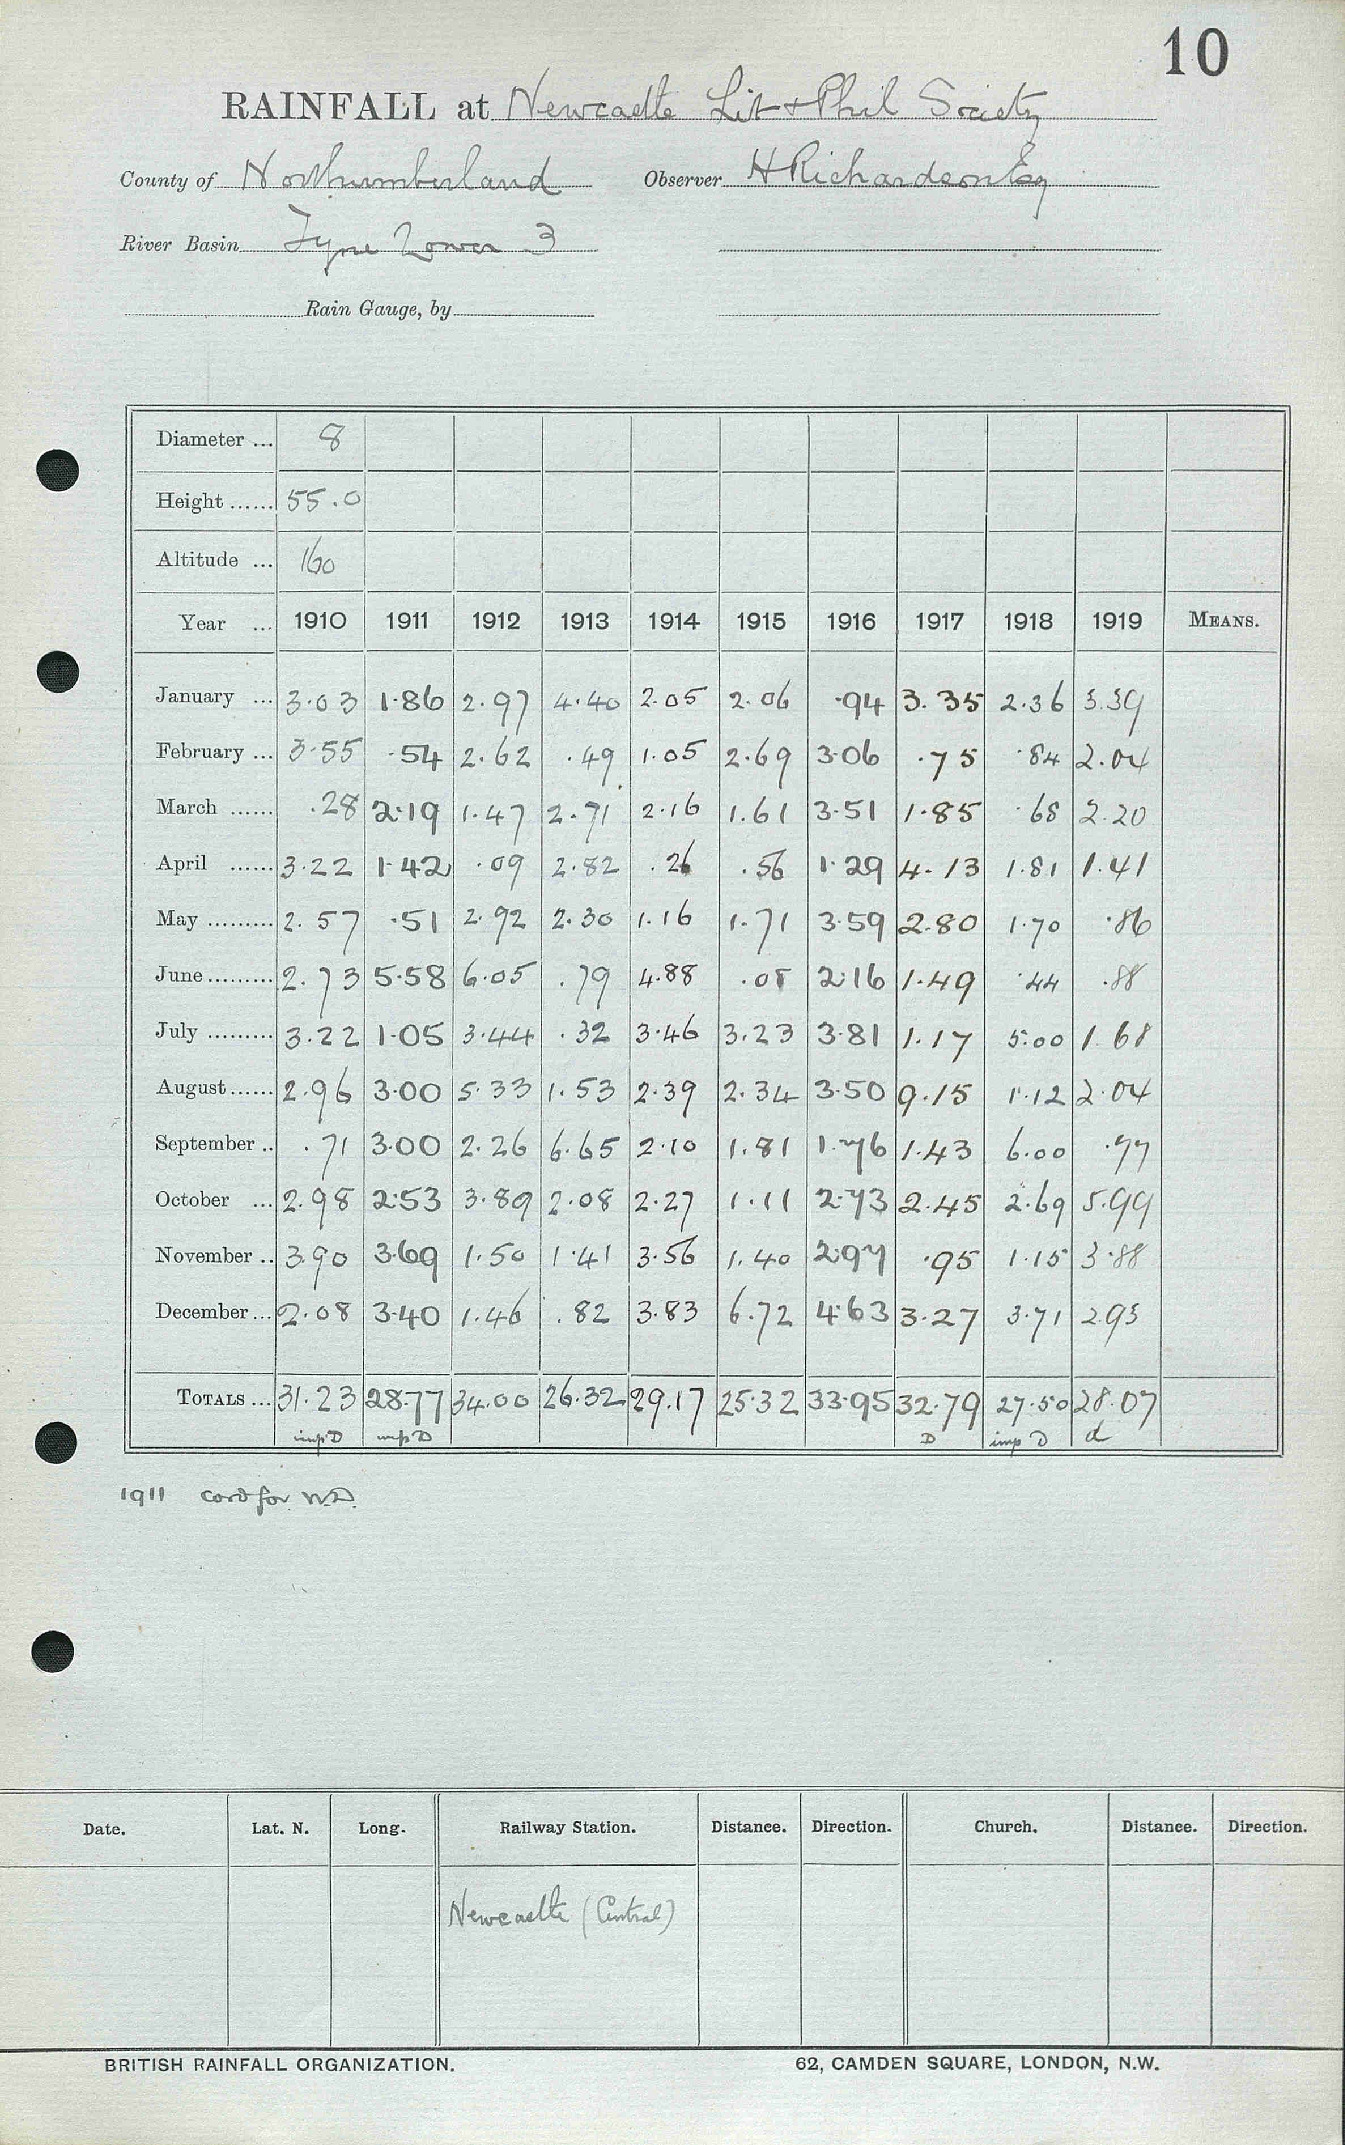 10
RAINFALL at Newcastle Lit & Phil Society
County of Northumberland Observer H Richardson Esq
River Basin Tyne Lower 3
Rain Gauge, by
Diameter ... 8
Height ...... 55.0
Altitude ... 160
Year ... 1910 1911 1912 1913 1914 1915 1916 1917 1918 1919 MEANS.
January ... 3.03 1.86 2.97 4.40 2.05 2.06 .94 3.35 2.36 3.39
February ... 3.55 .54 2.62 .49 1.05 2.69 3.06 .75 .84 2.04
March ...... .28 2.19 1.47 2.71 2.16 1.61 3.51 1.85 .68 2.20
April ...... 3.22 1.42 .09 2.82 .26 .56 1.29 4.13 1.81 1.41
May ......... 2.57 .51 2.92 2.30 1.16 1.71 3.59 2.80 1.70 .86
June ......... 2.73 5.58 6.05 .79 4.88 .08 2.16 1.49 .44 .88
July ......... 3.22 1.05 3.44 .32 3.46 3.23 3.81 1.17 5.00 1.68
August ...... 2.96 3.00 5.33 1.53 2.39 2.34 3.50 9.15 1.12 2.04
September .. .71 3.00 2.26 6.65 2.10 1.81 1.76 1.43 6.00 .77
October ... 2.98 2.53 3.89 2.08 2.27 1.11 2.73 2.45 2.69 5.99
November .. 3.90 3.69 1.50 1.41 3.56 1.40 2.97 .95 1.15 3.88
December ... 2.08 3.40 1.46 .82 3.83 6.72 4.63 3.27 3.71 2.93
TOTALS ... 31.23 28.77 34.00 26.32 29.17 25.32 33.95 32.79 27.50 28.07
imp D imp D D imp D d
1911 cord for W.D.
Date. Lat. N. Long. Railway Station. Distance. Direction. Church. Distance. Direction.
Newcastle (Central)
BRITISH RAINFALL ORGANIZATION. 62, CAMDEN SQUARE, LONDON, N.W.